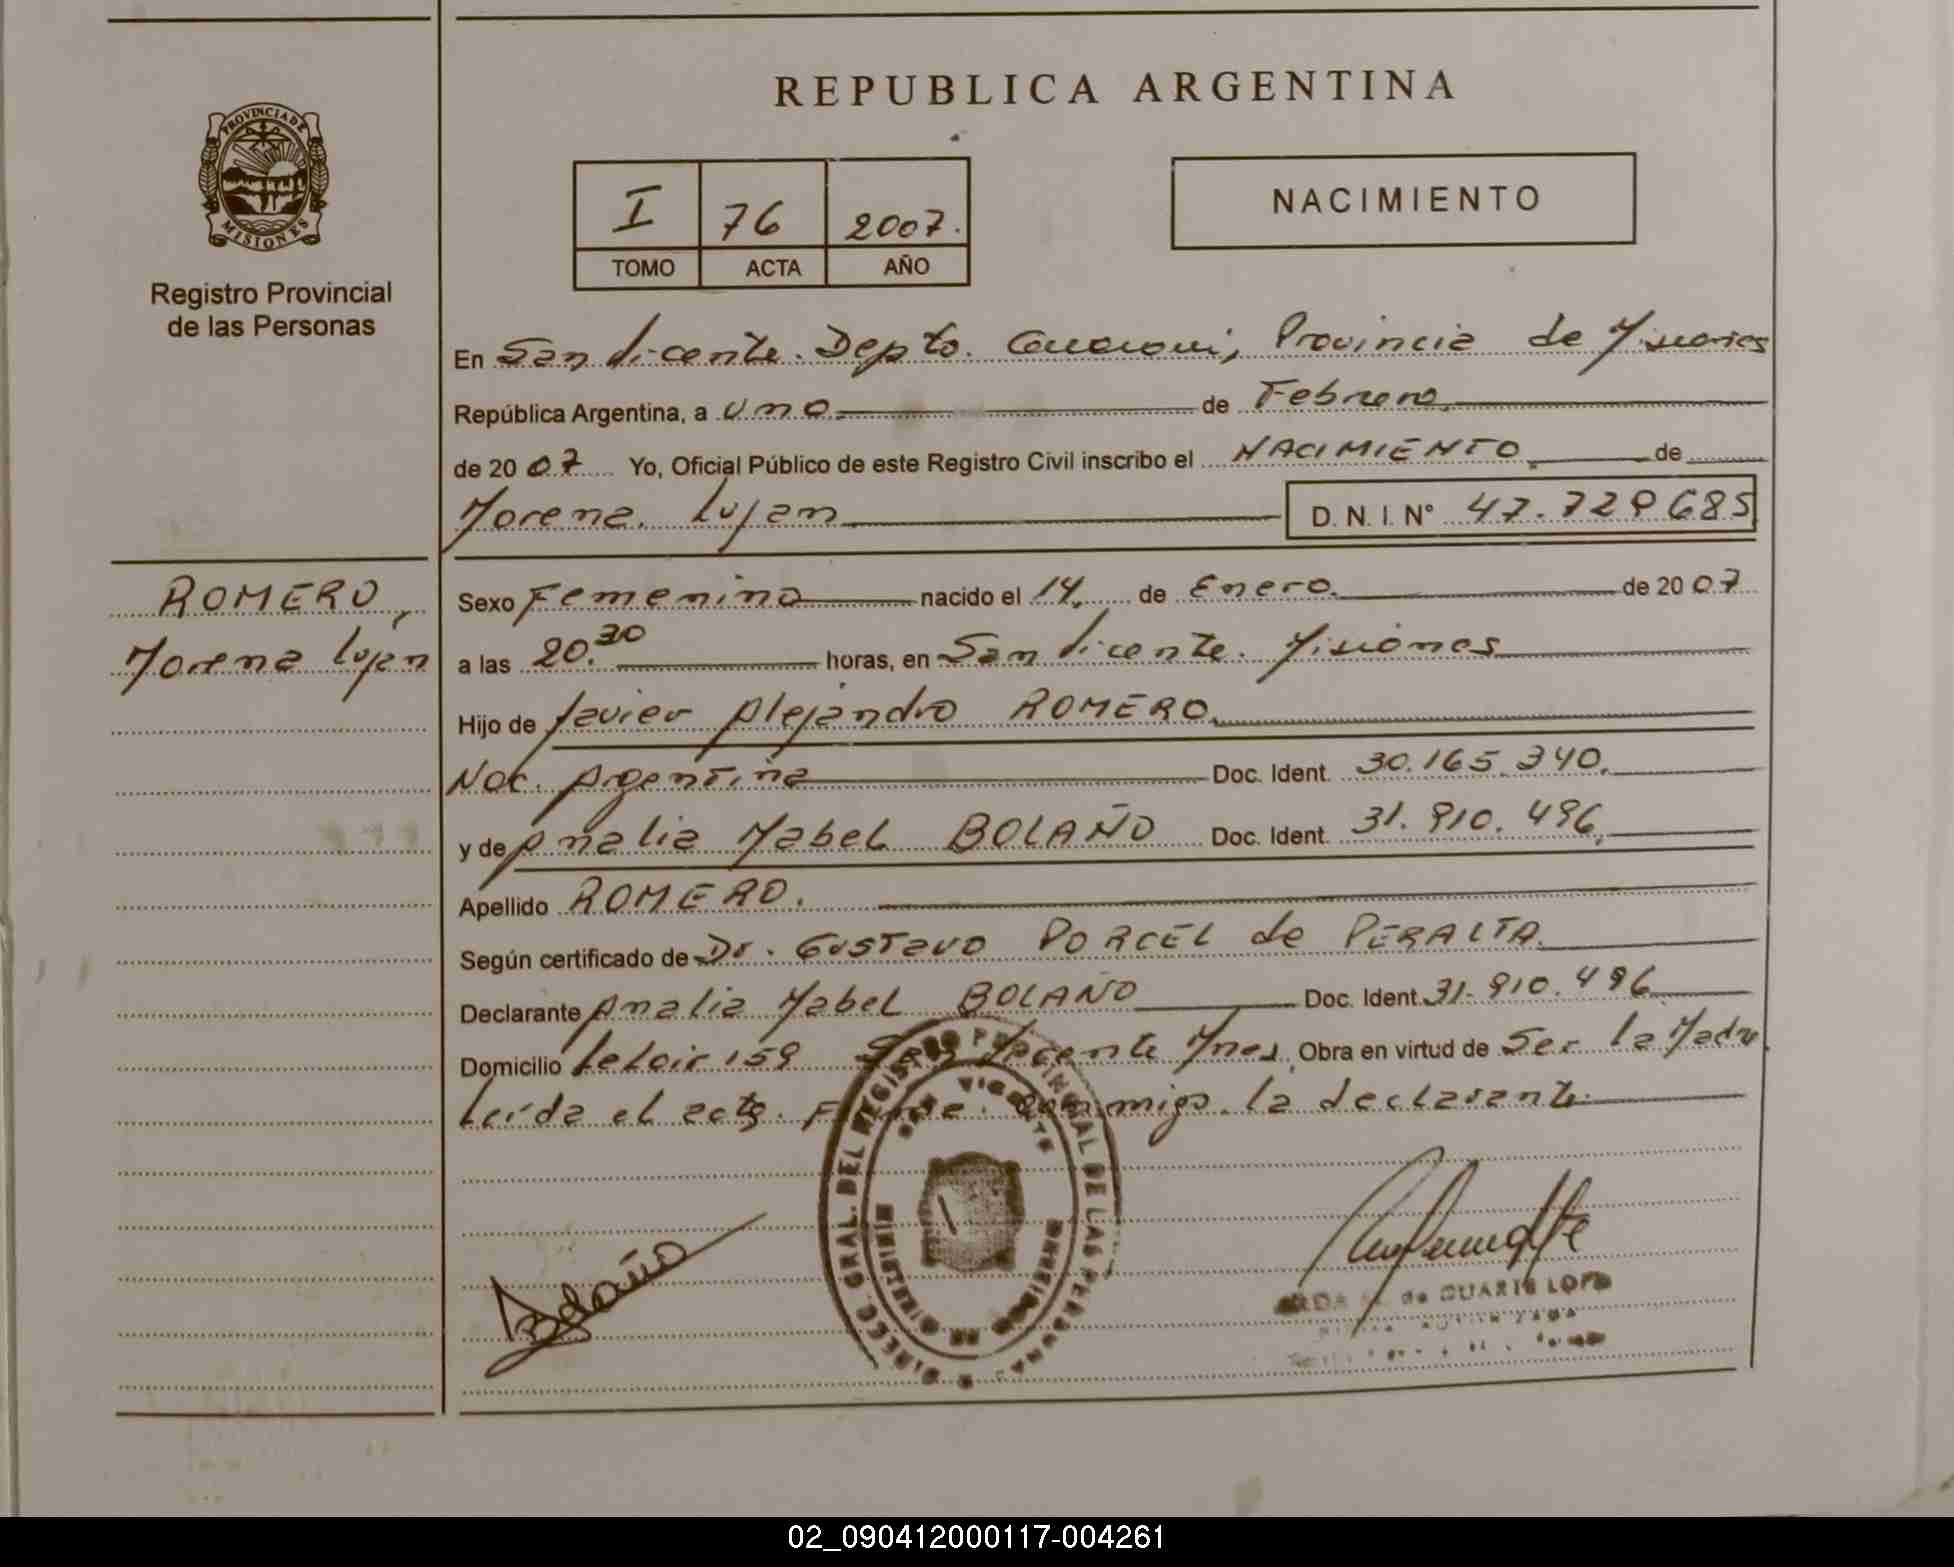 PROVINCIA DE
MISIONES
Registro Provincial
de las Personas
REPUBLICA ARGENTINA
I 76 2007.
TOMO ACTA AÑO
NACIMIENTO
En San Vicente. Depto. Guarani, Provincia de Misiones
República Argentina, a uno de Febrero
de 2007 Yo, Oficial Público de este Registro Civil inscribo el NACIMIENTO de
Morena Lujan D. N. I. N° 47.729685
ROMERO,
Morena Luján
Sexo Femenino nacido el 14 de Enero de 2007
a las 20.30 horas, en San Vicente. Misiones
Hijo de Javier Alejandro ROMERO
Nac. Argentina Doc. Ident. 30.165.340
y de Analia Mabel BOLAÑO Doc. Ident. 31.910.496
Apellido ROMERO.
Según certificado de Dr. Gustavo PORCEL de PERALTA
Declarante Analia Mabel BOLAÑO Doc. Ident. 31.910.496
Domicilio Leloir 159 San Vicente Mnes. Obra en virtud de Ser la Madre
Leída el acta. Firma conmigo la declarante.
DIREC. GRAL. DEL REGISTRO PROVINCIAL DE LAS PERSONAS
SAN VICENTE
Bolaño
de DUARTE
02_090412000117-004261